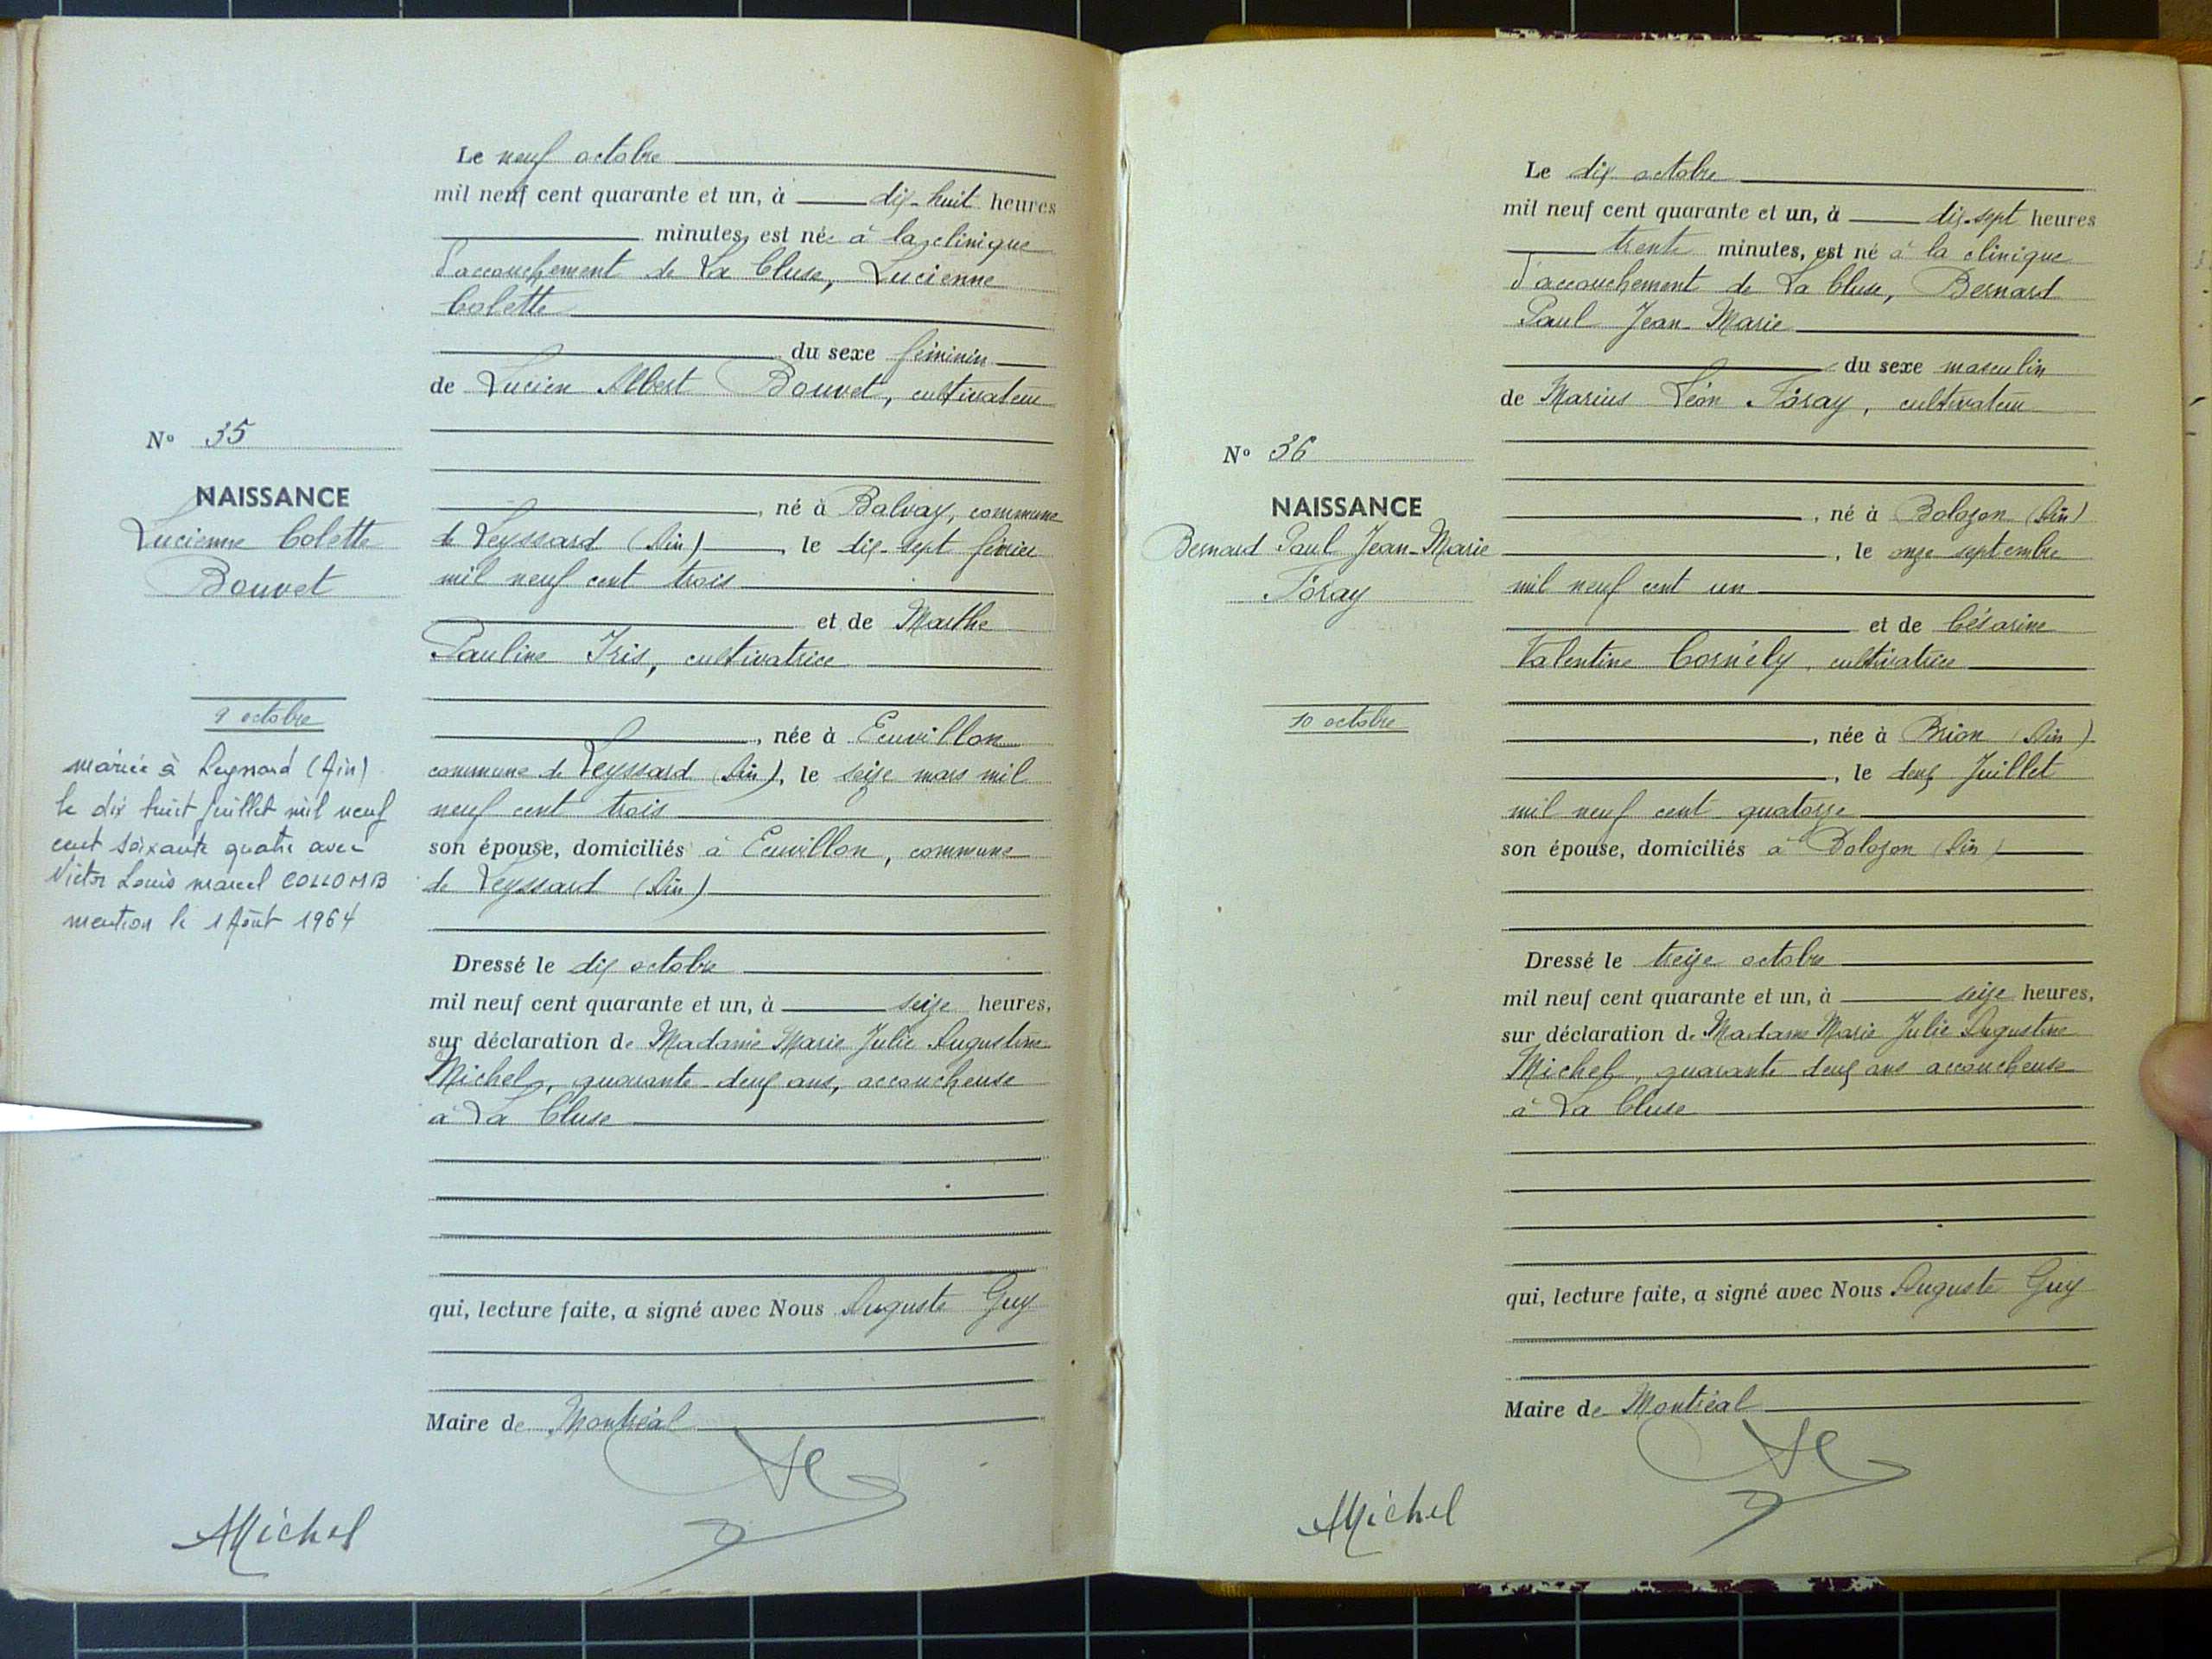 Le neuf octobre
mil neuf cent quarante et un, à dix-huit heures
minutes, est née à la clinique
d'accouchement de La Cluse, Lucienne
Colette
du sexe féminin
de Lucien Albert Bouvet, cultivateur
N° 35
NAISSANCE
Lucienne Colette
Bouvet
né à Balvay, commune
de Leyssard (Ain), le dix-sept février
mil neuf cent trois
et de Marthe
Pauline Iris, cultivatrice
9 octobre
mariée à Leyssard (Ain)
le dix huit juillet mil neuf
cent soixante quatre avec
Victor Louis marcel COLLOMB
mention le 1 Août 1964
, née à Ecuvillon
commune de Leyssard (Ain), le seize mars mil
neuf cent trois
son épouse, domiciliés à Ecuvillon, commune
de Leyssard (Ain)
Dressé le dix octobre
mil neuf cent quarante et un, à seize heures,
sur déclaration de Madame Marie Julie Augustine
Michel, quarante-deux ans, accoucheuse
à La Cluse
qui, lecture faite, a signé avec Nous Auguste Guy
Maire de Montréal
Michel
Le dix octobre
mil neuf cent quarante et un, à dix-sept heures
trente minutes, est né à la clinique
d'accouchement de La Cluse, Bernard
Paul Jean-Marie
du sexe masculin
de Marius Léon Foray, cultivateur
N° 36
NAISSANCE
Bernard Paul Jean-Marie
Foray
, né à Bolozon (Ain)
, le onze septembre
mil neuf cent un
et de Césarine
Valentine Cornély, cultivatrice
10 octobre
, née à Brion (Ain)
, le deux Juillet
mil neuf cent quatorze
son épouse, domiciliés à Bolozon (Ain)
Dressé le treize octobre
mil neuf cent quarante et un, à seize heures,
sur déclaration de Madame Marie Julie Augustine
Michel, quarante-deux ans accoucheuse
à La Cluse
qui, lecture faite, a signé avec Nous Auguste Guy
Maire de Montréal
Michel